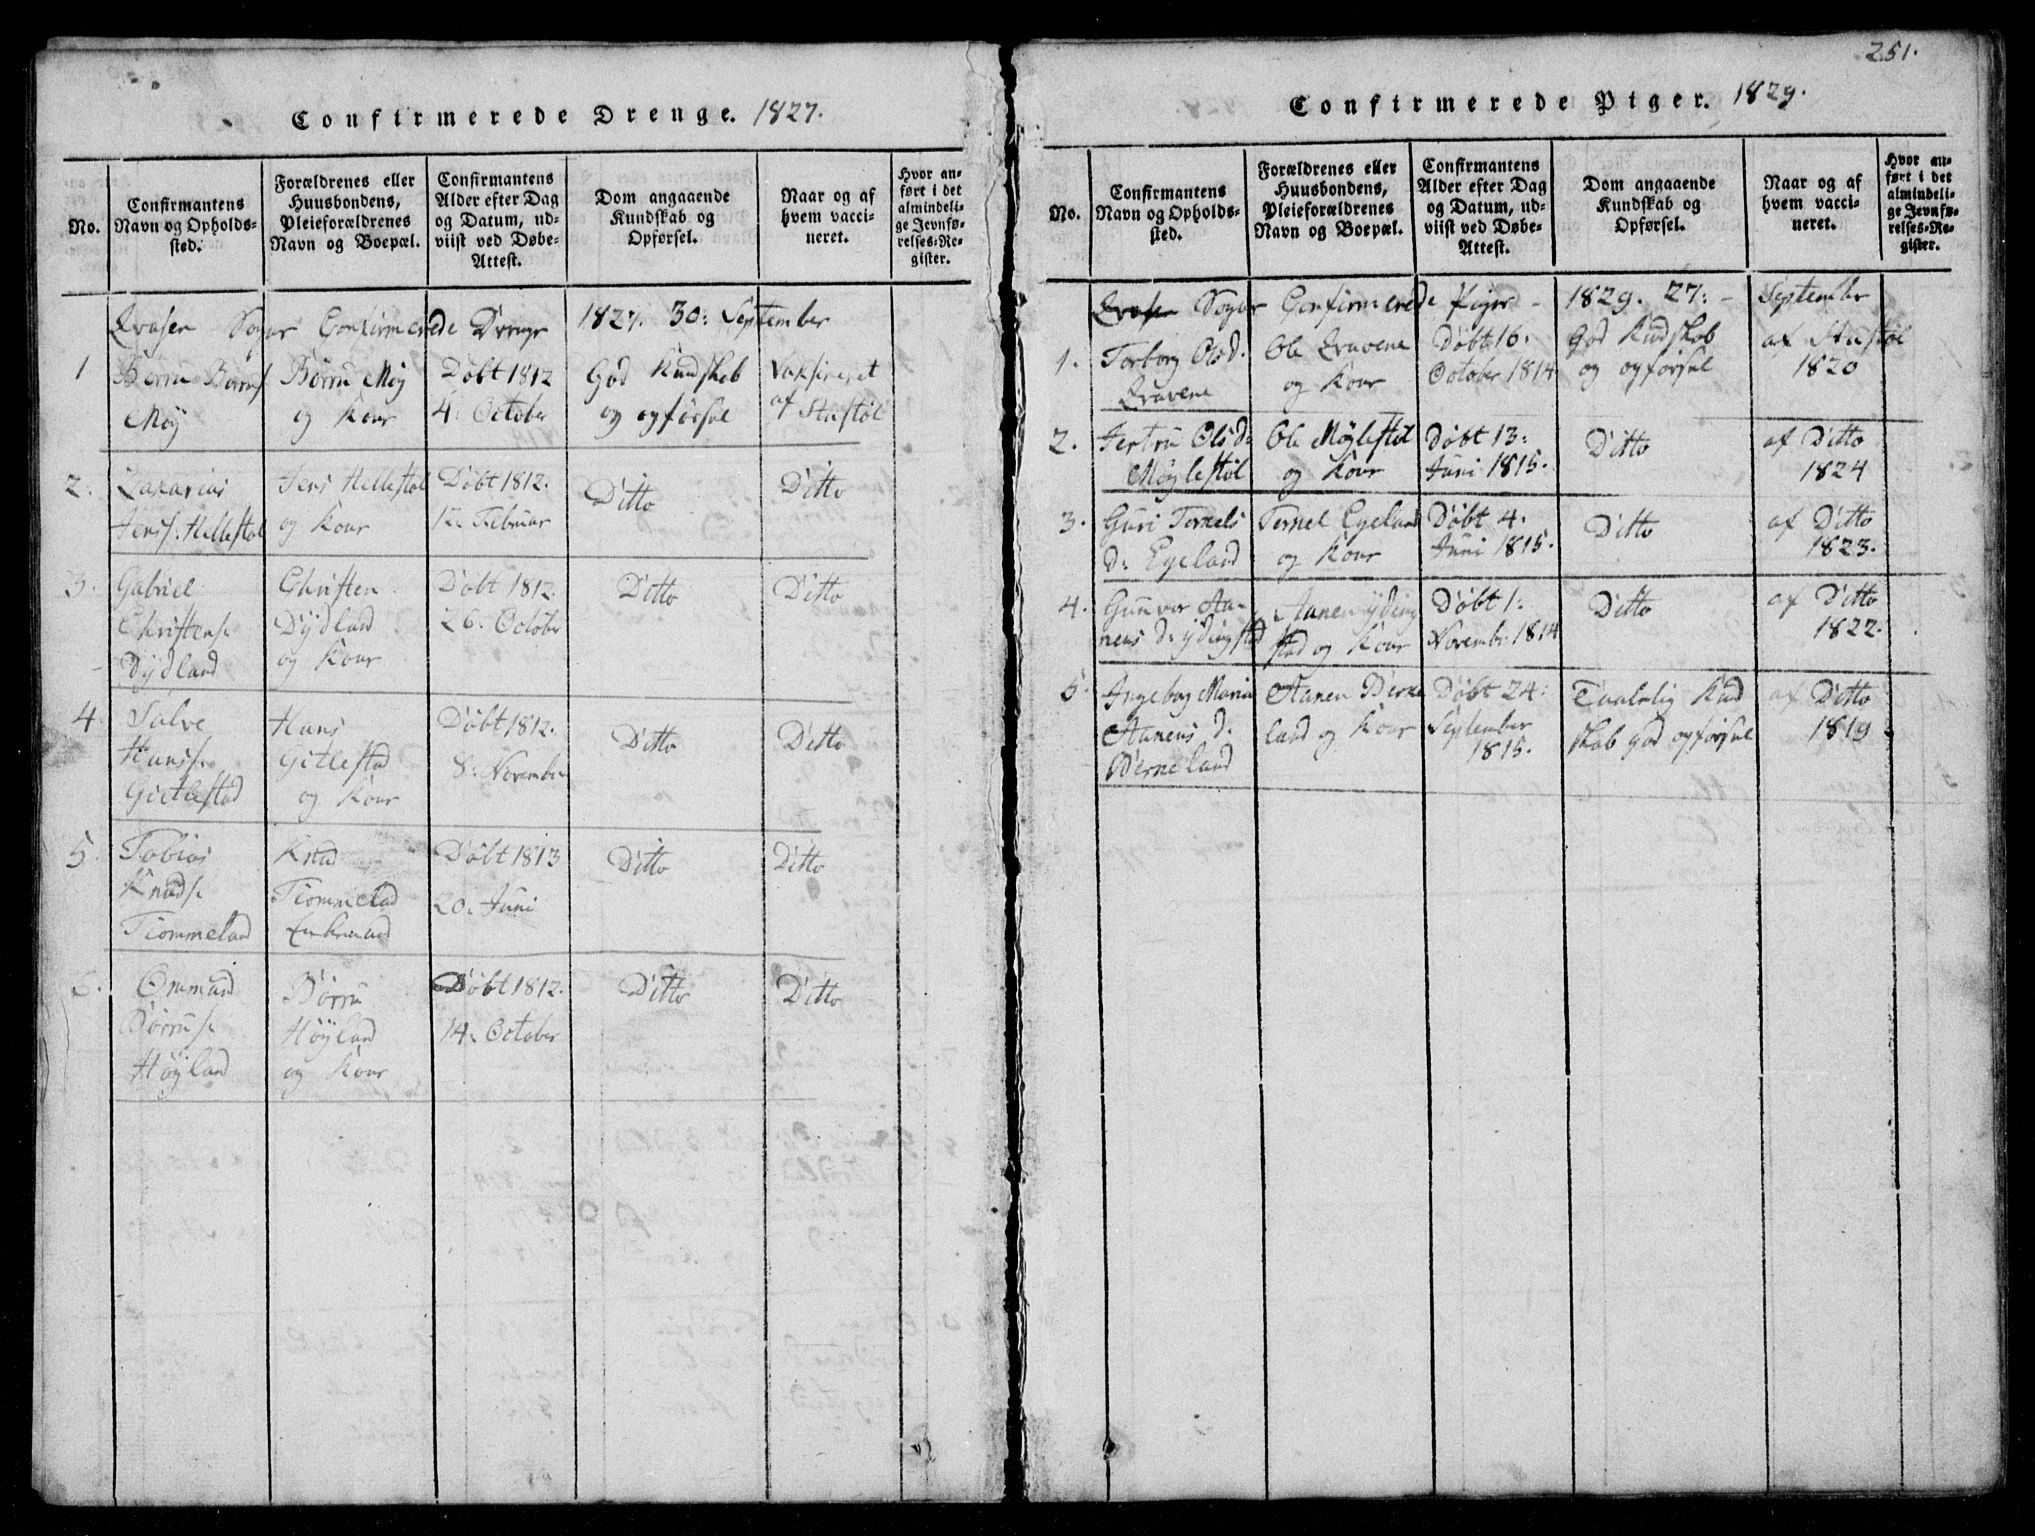 Confirmerede Drenge. 1827.
No.
Confirmantens
Navn og Opholds-
sted.
Forældrenes eller
Huusbondens,
Pleieforældrenes
Navn og Boepæl.
Confirmantens
Alder efter Dag
og Datum, ud-
viist ved Døbe-
Attest.
Dom angaaende
Kundskab og
Opførsel.
Naar og af
hvem vacci-
neret.
Hvor an-
ført i det
almindeli-
ge Jevnfø-
relses-Re-
gister.
Sogur Confirmerede Drenge 1827. 30: September
1
Børru Børrus
Møÿ
Børru Møÿ
og Kour
Døbt 1812
4. October
God Kundskab
og opførsel
Vaksineret
af Stustøl
2.
Zakarias
Jens. Hellestøl
Jens Hellestøl
og Kour
Døbt 1812.
12. Februar
Ditto
Ditto
3.
Gabriel
Christens.
Dÿdland
Christen
Dÿdland
og Kour
Døbt 1812.
26. October
Ditto
Ditto
4.
Salve
Hanss.
Gietlestad
Hans
Gitlestad
og Kour
Døbt 1812.
8. November
Ditto
Ditto
5
Tobias
Knuds.
Tiommeland
Knud
Tiommelad
Enkemand
Døbt 1813
20. Juni
Ditto
Ditto
6.
Ommund
Børrus.
Høÿland
Børru
Høÿland
og Kour
Døbt 1812.
14. October
Ditto
Ditto
251.
Confirmerede Piger. 1829.
No.
Confirmantens
Navn og Opholds-
sted.
Forældrenes eller
Huusbondens,
Pleieforældrenes
Navn og Boepæl.
Confirmantens
Alder efter Dag
og Datum, ud-
viist ved Døbe-
Attest.
Dom angaaende
Kundskab og
Opførsel.
Naar og af
hvem vacci-
neret.
Hvor an-
ført i det
almindeli-
ge Jevnfø-
relses-Re-
gister.
Sogur Confirmerede Piger - 1829. 27: - September
1.
Torborg Olsd.
Qvavene
Ole Qvavene
og Kour
Døbt 16.
October 1814
God Kudskob
og opførsel
af Stustøl
1820
2.
Jertru Olsd:
Møÿlestøl
Ole Møÿlestøl
og Kour
Døbt 13:
Juni 1815.
Ditto
af Ditto
1824
3.
Guri Tornels
d: Egeland
Tornel Egeland
og Kour
Døbt 4.
Juni 1815.
Ditto
af Ditto
1823.
4.
Gunvor Aa-
nens d: ÿdingstad
Aanen ÿding
stad og Kour
Døbt 1:
Novemb: 1814
Ditto
af Ditto
1822.
5.
Ingebor Maria
Aanens d.
Berneland
Aanen Berne
land og Kour
Døbt 24:
September
1815.
Taalelig Kud
skab god opførsel
af Ditto
1819